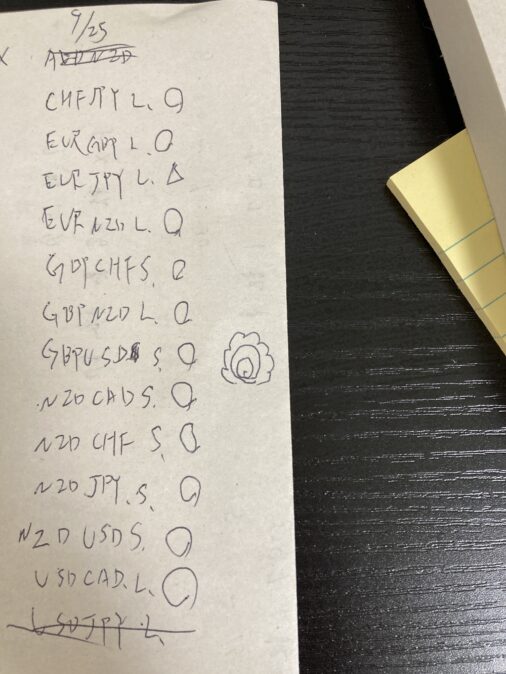 9/25
CHFJPY L. ○
EURGBP L. ○
EURJPY L. △
EURNZD L. ○
GBPCHF S. ○
GBPNZD L. ○
GBPUSD S. ○
NZDCAD S. ○
NZD CHF S. ○
NZD JPY. S. ○
NZD USD S. ○
USDCAD. L. ○
USDJPY L.